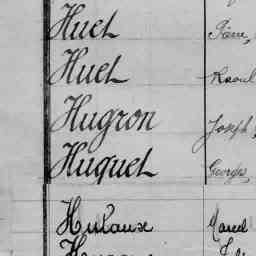 Huet Pierre,
Huet Raoul
Hugron Joseph
Huguet Georges,
Hulaux Marcel